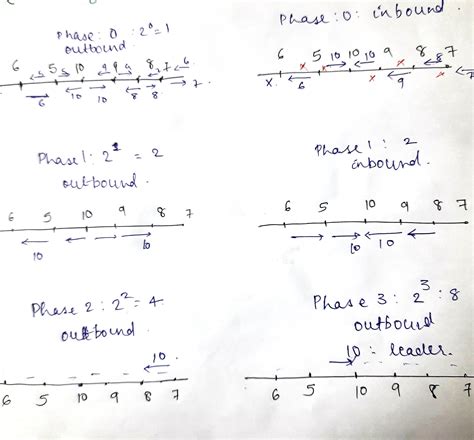 Phase : 0 : 2⁰ = 1
outbound
6 5 5 10 9 9 9 8 7 6
6 10 10 8 8 7
Phase : 0 : inbound.
6 5 10 10 9 8 8 7
x x x x x
x. 6 9 7
Phase 1 : 2¹ = 2
outbound.
6 5 10 9 8 7
10 10
Phase 1 : 2
inbound.
6 5 10 9 8 7
10 10
Phase 2 : 2² = 4
outbound.
10
6 5 10 9 8 7
Phase 3 : 2³ : 8
outbound
10 : leader.
6 5 10 9 8 7